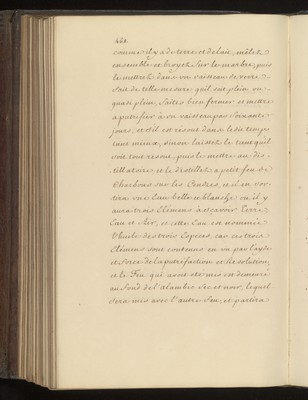 468.
comme il y a de terre et de bois, mélez
ensemble et broyez sur le marbre, puis
le mettrez dans un vaisseau de verre
fait de telle mesure quil soit plein ou
quasi plein, faites bien fermer et mettre
a putrefier a un vaisseau par soixante
jours, et s'il est résout dans le dit temps
tant mieux, sinon laissez le tant quil
soit tout résout, puis le mettre au dis-
tillatoire et le distillez a petit feu de
Charbons sur les Cendres, et il en sor-
tira une Eau belle et blanche ou il y
aura trois Elemens à sçavoir Terre
Eau et Air, et cette Eau est nommée
l'huile des trois Especes, car ces trois
Elemens sont contenus en un par l'ayde
et force de la putréfaction et Resolution,
et le Feu qui avoit été mis est demeuré
au fond de l'alambic sec et noir, lequel
sera mis avec l'autre feu, et partira